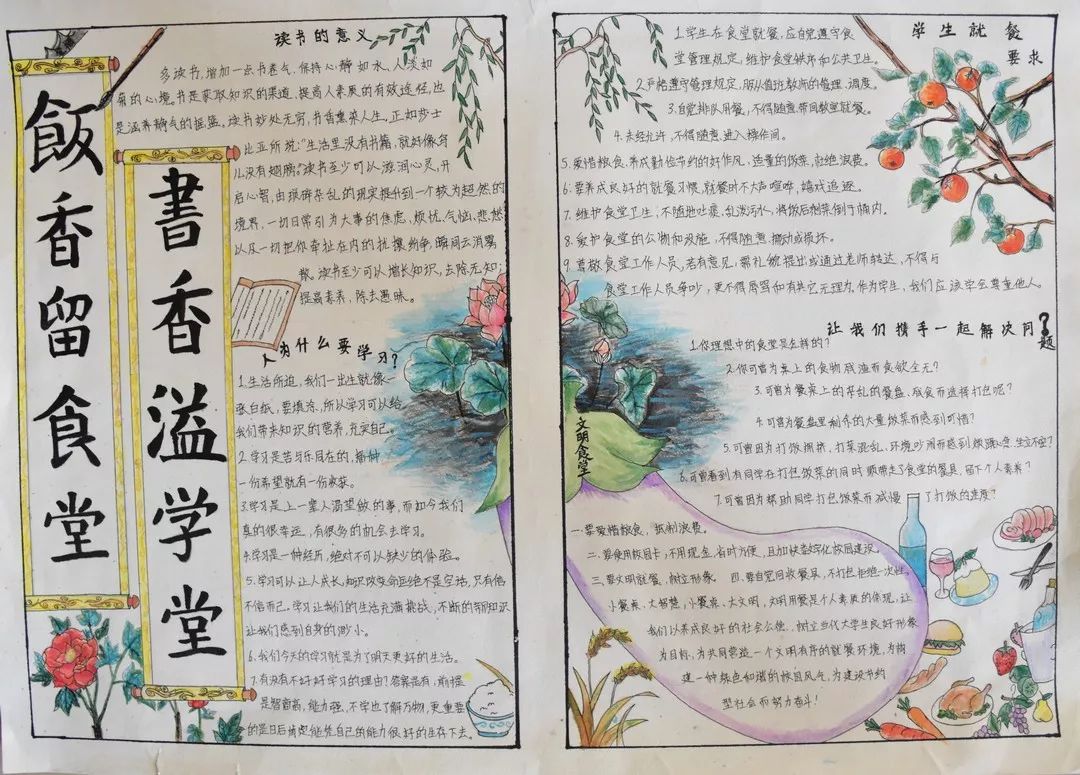 飯香留食堂
書香溢学堂
读书的意义
多读书,增加一点书卷气,保持心静如水,人淡如
菊的心境。书是获取知识的渠道,提高人素质的有效途径,也
是涵养静气的摇篮。读书妙处无穷,书香熏染人生。正如莎士
比亚所说:"生活里没有书籍,就好像鸟
儿没有翅膀。"读书至少可以滋润心灵,开
启心智,由琐碎杂乱的现实提升到一个较为超然的
境界,一切日常引为大事的焦虑、烦忧、气恼、悲愁
以及一切把你牵扯在内的扰攘纷争,瞬间云消雾
散。读书至少可以增长知识,去除无知;
提高素养,除去愚昧。
人为什么要学习?
1.生活所迫,我们一出生就像一
张白纸,要填涂,所以学习可以给
我们带来知识的营养,充实自己。
2.学习是苦与乐同在的,播种
一份希望就有一份收获。
3.学习是上一辈人渴望做的事,而如今我们
真的很幸运,有很多的机会去学习。
4.学习是一种经历,绝对不可以缺少的体验。
5.学习可以让人成长,知识改变命运绝不是空话,只有信
不信而已。学习让我们的生活充满挑战,不断的新知识
让我们感到自身的渺小。
6.我们今天的学习就是为了明天更好的生活。
7.有没有不好好学习的理由?答案是有,前提
是智商高,能力强,不学也了解万物,更重要
的是日后肯定能凭自己的能力很好的生存下去。
学生就餐
要求
1.学生在食堂就餐,应自觉遵守食
堂管理规定,维护食堂秩序和公共卫生。
2.严格遵守管理规定,服从值班教师的管理、调度。
3.自觉排队用餐,不得随意带回教室就餐。
4.未经允许,不得随意进入操作间。
5.爱惜粮食,养成勤俭节约的好作风,适量的饭菜,拒绝浪费。
6.要养成良好的就餐习惯,就餐时不大声喧哗,嬉戏追逐。
7.维护食堂卫生,不随地吐痰,乱泼污水,将饭后剩菜倒于桶内。
8.爱护食堂的公物和设施,不得随意挪动或损坏。
9.尊敬食堂工作人员,若有意见,需礼貌提出或通过老师转达,不得与
食堂工作人员争吵,更不得辱骂和有其它无理为,作为学生,我们应该学会尊重他人。
让我们携手一起解决问题?
1.你理想中的食堂是怎样的?
2.你可曾为桌上的食物残渣而食欲全无?
3.可曾为餐桌上的杂乱的餐盘、残食而选择打包呢?
4.可曾为餐盘里剩余的大量饭菜而感到可惜?
5.可曾因为打饭拥挤,打菜混乱,环境吵闹而感到烦躁心急,坐立不安?
6.可曾看到有同学在打包饭菜的同时顺带走了食堂的餐具,留下个人素养?
7.可曾因为帮助同学打包饭菜而减慢了打饭的速度?
文明食堂
一.要爱惜粮食,抵制浪费。
二.要使用校园卡,不用现金,省时方便,且加快数字化校园建设。
三.要文明就餐,树立形象。 四.要自觉回收餐具,不打包拒绝一次性。
小餐桌、大智慧,小餐桌、大文明,文明用餐是个人素质的体现,让
我们以养成良好的社会公德,树立当代大学生良好形象
为目标,为共同营造一个文明有序的就餐环境,为构
建一种绿色和谐的校园风气,为建设节约
型社会而努力奋斗!